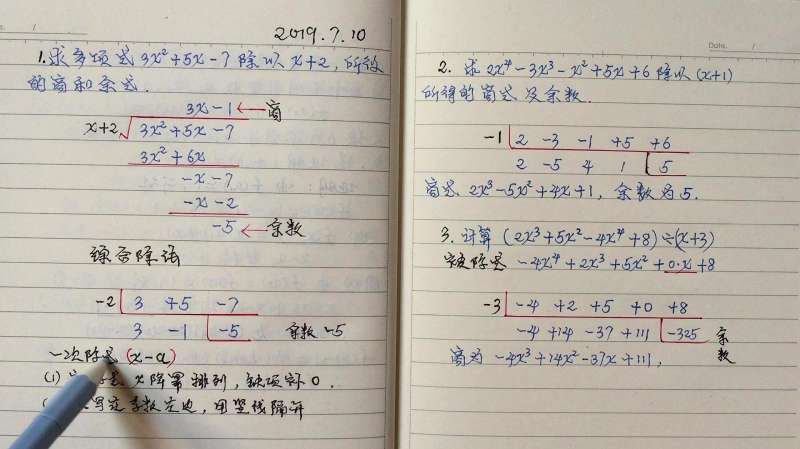 2019.7.10
1. 求多项式 3x²+5x-7 除以 x+2, 所得
的商和余式.
3x-1 ← 商
x+2 3x²+5x-7
3x²+6x
-x-7
-x-2
-5 ← 余数
综合除法
-2 3 +5 -7
3 -1 -5 余数 -5
一次除式 (x-a)
(1) x降幂排列, 缺项补0.
系数左边, 用竖线隔开
Date. /
2. 求 2x⁴-3x³-x²+5x+6 除以 (x+1)
所得的商式及余数.
-1 2 -3 -1 +5 +6
2 -5 4 1 5
商式 2x³-5x²+4x+1, 余数为5.
3. 计算 (2x³+5x²-4x⁴+8)÷(x+3)
被除式 -4x⁴+2x³+5x²+0·x+8
-3 -4 +2 +5 +0 +8
-4 +14 -37 +111 -325 余数
商为 -4x³+14x²-37x+111,